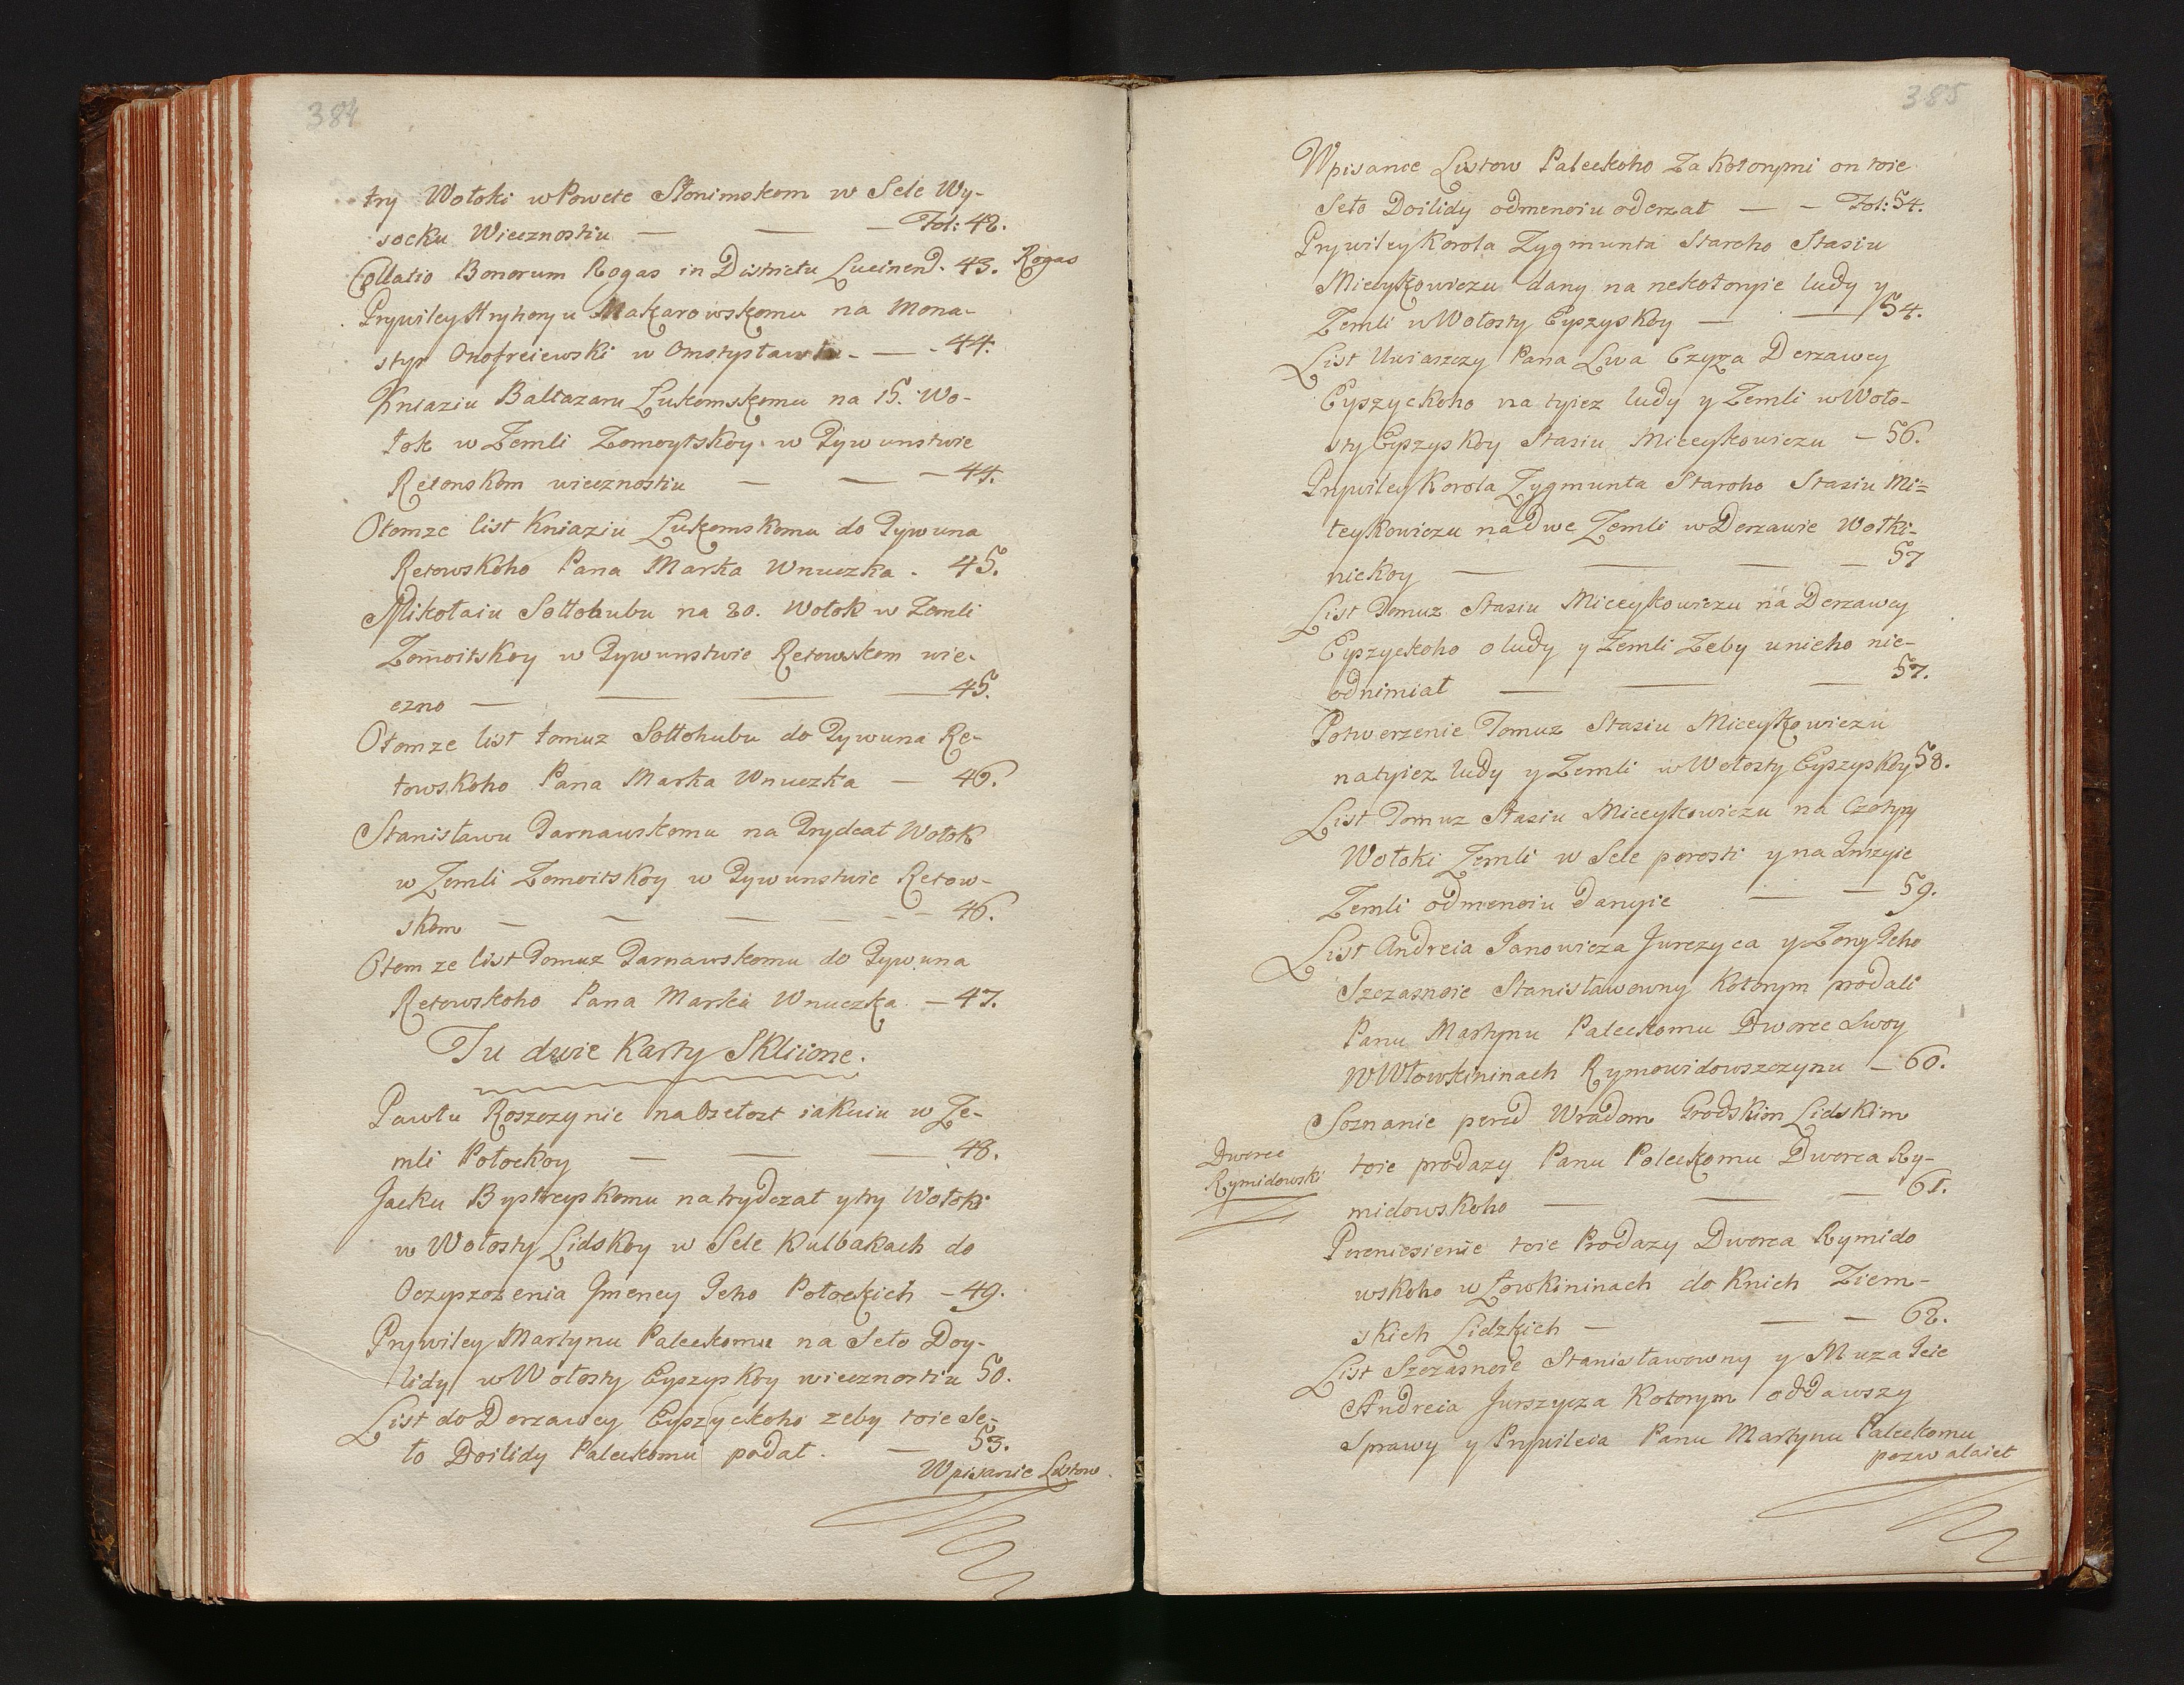 384
try Wołoki w Powete Słonimskom w Sele Wy-
socku Wiecznostiu — — — Fol: 42.
Collatio Bonorum Rogas in Districtu Lucinen̄. 43. Rogas
Prywiley Hryhoryu Makarowskomu na Mona-
styr Onofreiewski w Omstysławlu — — 44.
Kniaziu Baltazaru Łukomskomu na 15. Wo-
łok w Zemli Zomoytskoy w Tywunstwie
Retowskom wiecznostiu — — — 44.
Otomze list Kniaziu Łukomskomu do Tywuna
Retowskoho Pana Marka Wnuczka . 45.
Mikołaiu Sołłohubu na 20. Wołok w Zemli
Zomoitskoy w Tywunstwie Retowskom wie-
czno — — — 45.
Otomze list tomuz Sołłohubu do Tywuna Re-
towskoho Pana Marka Wnuczka — 46.
Stanisławu Tarnawskomu na Trydcat Wołok
w Zemli Zomoitskoy w Tywunstwie Retow-
skom — — — — — 46.
Otom ze list Tomuz Tarnawskomu do Tywuna
Retowskoho Pana Marka Wnuczka — 47.
Tu dwie Karty Skliione.
Pawłu Roszczynie na osełost iakuiu w Ze-
mli Połockoy — — — 48.
Jacku Bystreyskomu na trydczat y try Wołoki
w Wołosty Lidskoy w Sele Kulbakach do
Oczyszczenia Jmeney Jeho Połockich — 49.
Prywiley Martynu Paleckomu na Seło Doy-
lidy w Wołosty Eyszyskoy wiecznostiu 50.
List do Derzawcy Eyszyckoho zeby toie Se-
ło Doilidy Paleckomu podał. — 53.
Wpisanie Listow.
385
Wpisanie Listow Paleckoho Za Kotorymi on toie
Seło Doilidy odmenoiu oderzał — — Fol: 54.
Prywiley Korola Zygmunta Staroho Stasiu
Miceykowiczu dany na nekotoryie ludy y
Zemli w Wołosty Eyszyskoy — — 54.
List Uwiaszczy Pana Lwa Czyza Derzawcy
Eyszyckoho na tyiez ludy y Zemli w Woło-
sty Eyszyskoy Stasiu Miceykowiczu — 56.
Prywiley Korola Zygmunta Staroho Stasiu Mi=
ceykowiczu na dwe Zemli w Derzawie Wołki-
nickoy — — — — 57
List Tomuz Stasiu Miceykowiczu na Derzawcy
Eyszyckoho o ludy y Zemli Zeby u nieho nie-
odnimiał — — — 57.
Potwerzenie Tomuz Stasiu Miceykowiczu
na tyiez ludy y Zemli w Wołosty Eyszyskoy 58.
List Tomuz Stasiu Miceykowiczu na Czotyry
Wołoki Zemli w Sele porosti y na Jnszyie
Zemli odmenoiu Danyie — — 59.
List Andreia Janowicza Jurczyca y Zony Jeho
Szczasnoie Stanisławowny Kotorym prodali
Panu Martynu Paleckomu Dworec Swoy
W Włowkininach Rymowidowszczynu — 60.
Soznanie pered Wradom Grodskim Lidskim
Dworec
Rymidowski
toie prodazy Panu Paleckomu Dworca Ry-
midowskoho — — — 61.
Pereniesienie toie Prodazy Dworca Rymido
wskoho w Łowkininach do Knich Ziem-
skich Lidzkich — — — 62.
List Szczasnoie Stanisławowny y Muza Jeie
Andreia Jurszyza Kotorym oddawszy
Sprawy y Prywileia Panu Martynu Paleckomu
pozwalaiet